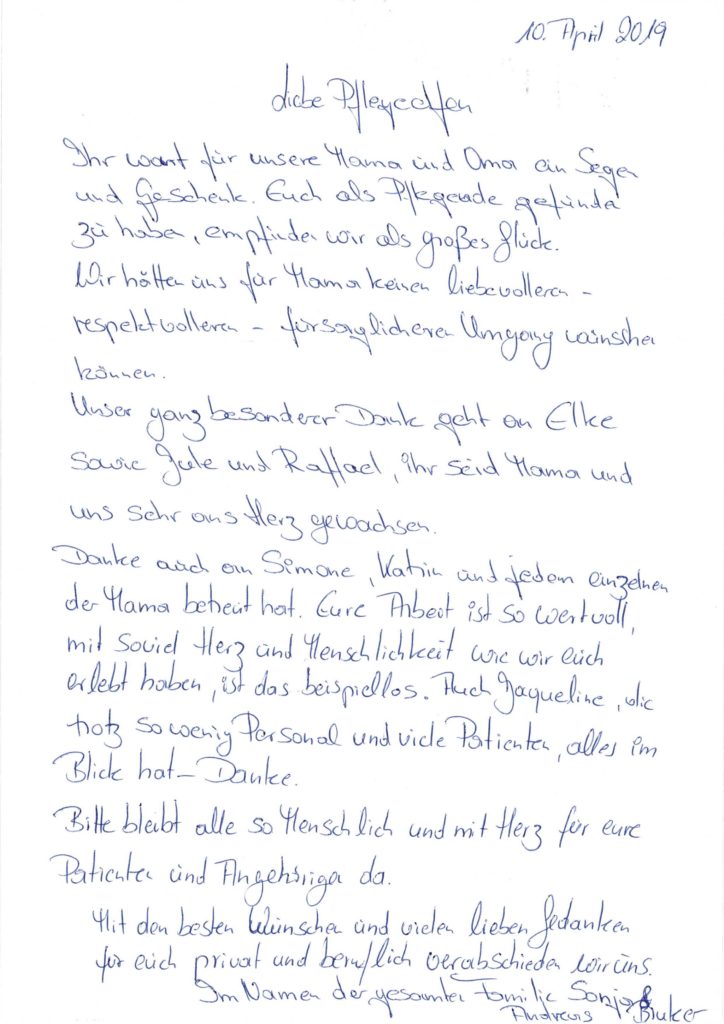 10. April 2019
Liebe Pflegeelfen
Ihr wart für unsere Mama und Oma ein Segen
und Geschenk. Euch als Pflegende gefunden
zu haben, empfinden wir als großes Glück.
Wir hätten uns für Mama keinen liebevolleren -
respektvolleren - fürsorglicheren Umgang wünschen
können.
Unser ganz besonderer Dank geht an Elke
sowie Jule und Raffael, ihr seid Mama und
uns sehr ans Herz gewachsen.
Danke auch an Simone, Katrin und jedem einzelnen
der Mama betreut hat. Eure Arbeit ist so wertvoll,
mit soviel Herz und Menschlichkeit wie wir euch
erlebt haben, ist das beispiellos. Auch Jaqueline, die
trotz so wenig Personal und viele Patienten, alles im
Blick hat - Danke.
Bitte bleibt alle so Menschlich und mit Herz für eure
Patienten und Angehörigen da.
Mit den besten Wünschen und vielen lieben Gedanken
für euch privat und beruflich verabschieden wir uns.
Im Namen der gesamten Familie Sonja &
Andreas